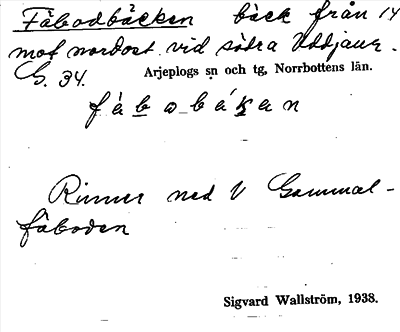 Fäbodbäcken bäck från 14
mot nordost vid södra Uddjaur.
G. 34. Arjeplogs sn och tg, Norrbottens län.
fä́bobä́kan
Rinner ned V Gammal-
fäboden
Sigvard Wallström, 1938.